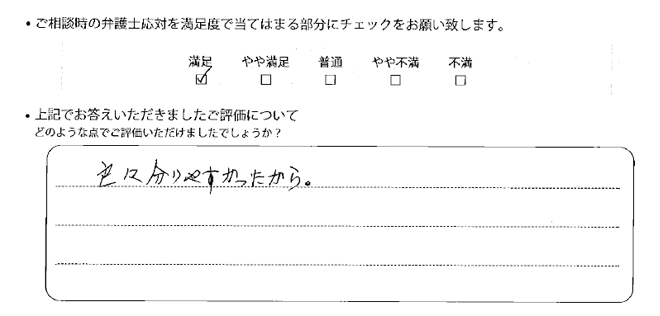 ・ご相談時の弁護士応対を満足度で当てはまる部分にチェックをお願い致します。
満足 やや満足 普通 やや不満 不満
☑ □ □ □ □
・上記でお答えいただきましたご評価について
どのような点でご評価いただけましたでしょうか？
色々分りやすかったから。